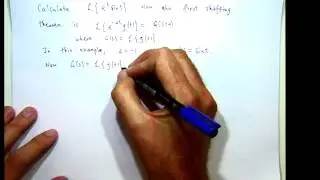 Calculate ℒ{e^t sin t} Now the first shifting
theorem is ℒ{e^{-at} g(t)} = G(s+a)
where G(s) = ℒ{g(t)}
In this example, a = -1 = sin t.
Now G(s) = ℒ{g(t)}